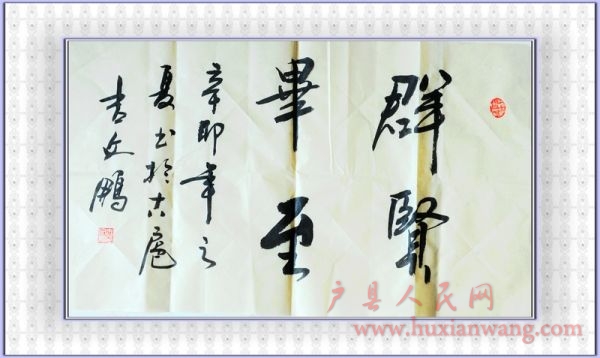 群賢
畢至
辛卯年之
夏书於古扈
吉文鵬
户县人民网
www.huxianwang.com